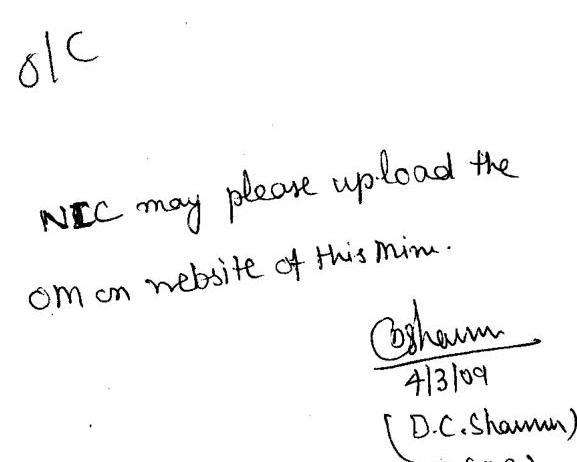 O/C
NIC may please upload the
OM on website of this Min.
4/3/09
(D.C. Sharma)